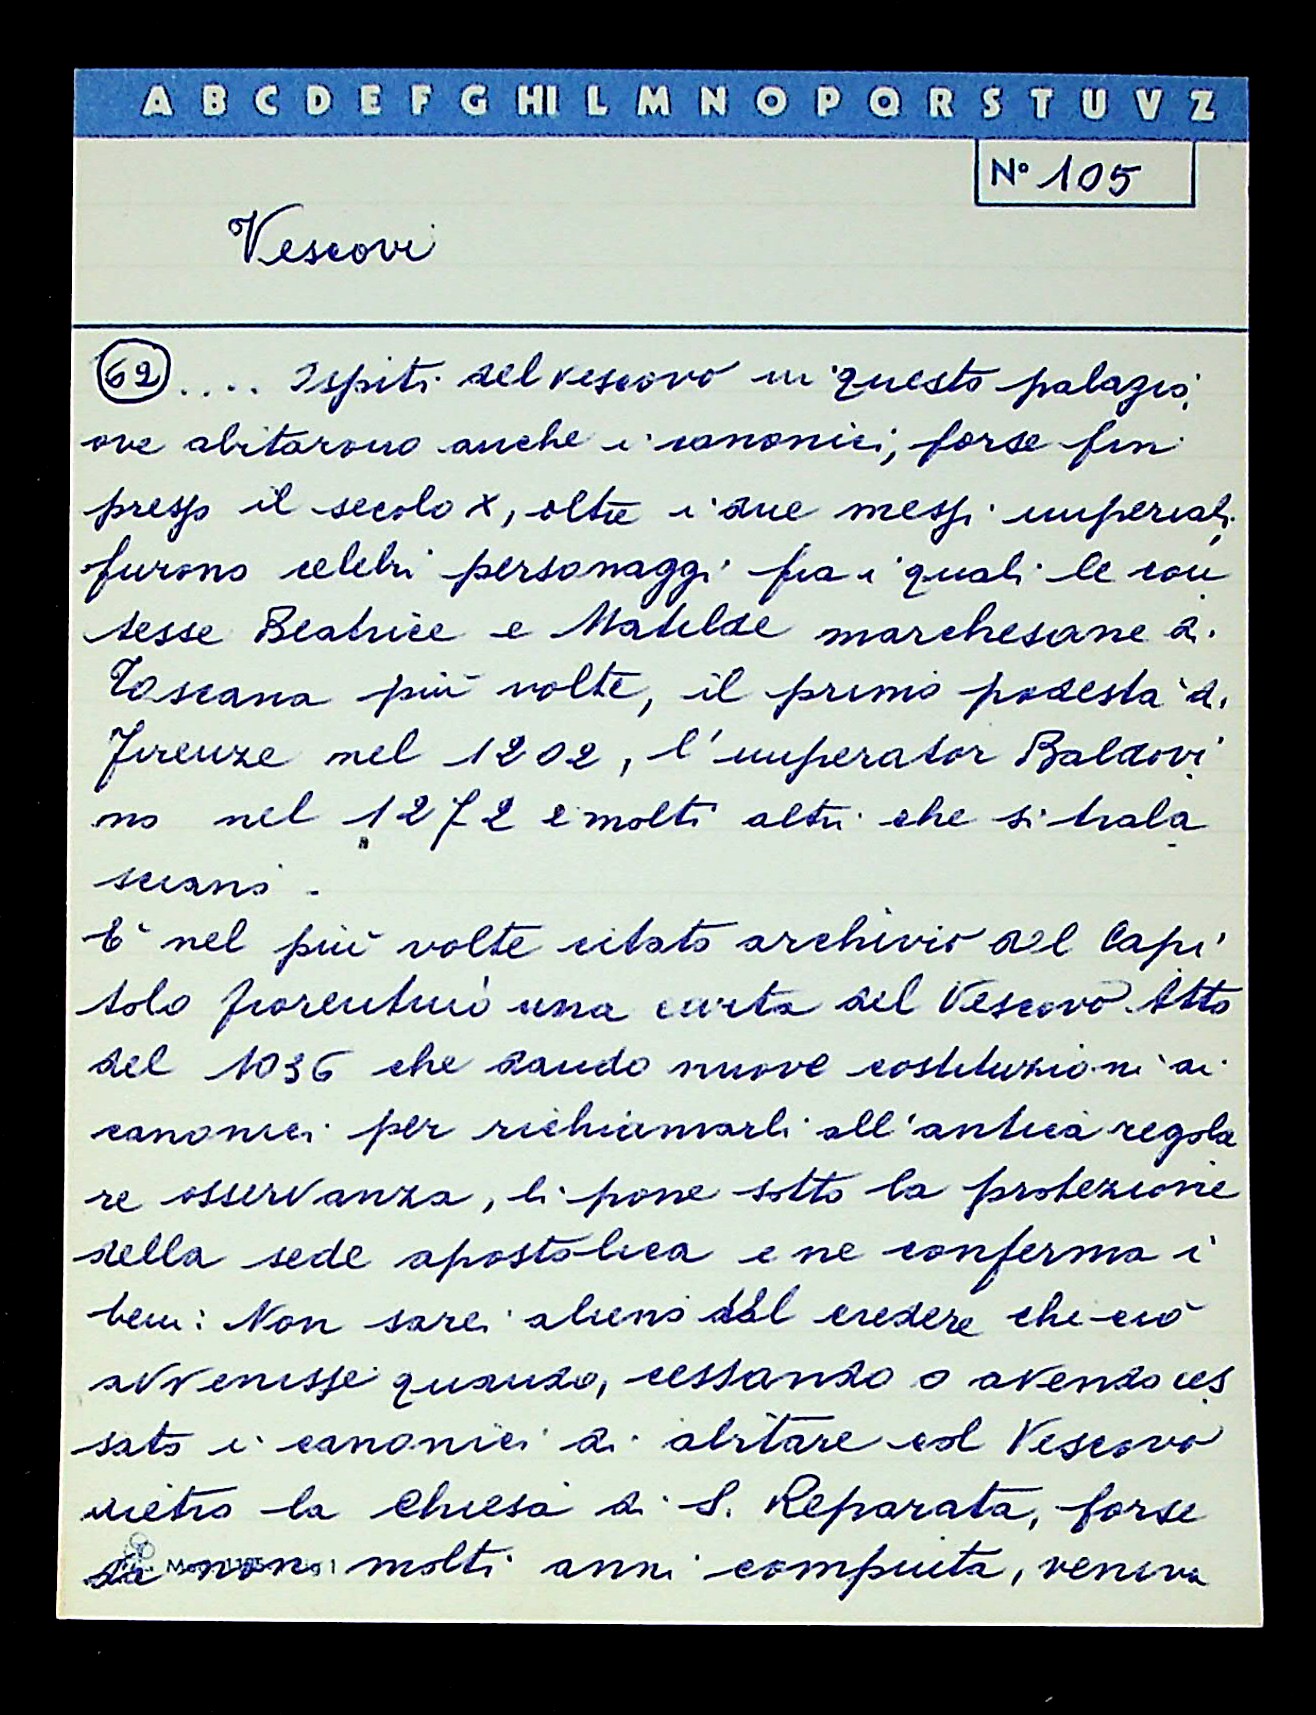 A B C D E F G HI L M N O P Q R S T U V Z
N° 105
Vescovi
62 .... Ospiti del vescovo in questo palazzo,
ove abitarono anche i canonici, forse fin
presso il secolo X, oltre i due messi imperiali,
furono celebri personaggi fra i quali le con
tesse Beatrice e Matilde marchesane di
Toscana più volte, il primo podestà di
Firenze nel 1202, l'imperator Baldovi
no nel 1272 e molti altri che si trala
sciano.
È nel più volte citato archivio del Capi
tolo fiorentino una carta del Vescovo Atto
del 1036 che dando nuove costituzioni ai
canonici per richiamarli all'antica regola
re osservanza, li pone sotto la protezione
della sede apostolica e ne conferma i
beni: Non sarei alieno dal credere che ciò
avvenisse quando, cessando o avendo ces
sato i canonici di abitare col Vescovo
vietro la Chiesa di S. Reparata, forse
da non molti anni compiuta, veniva